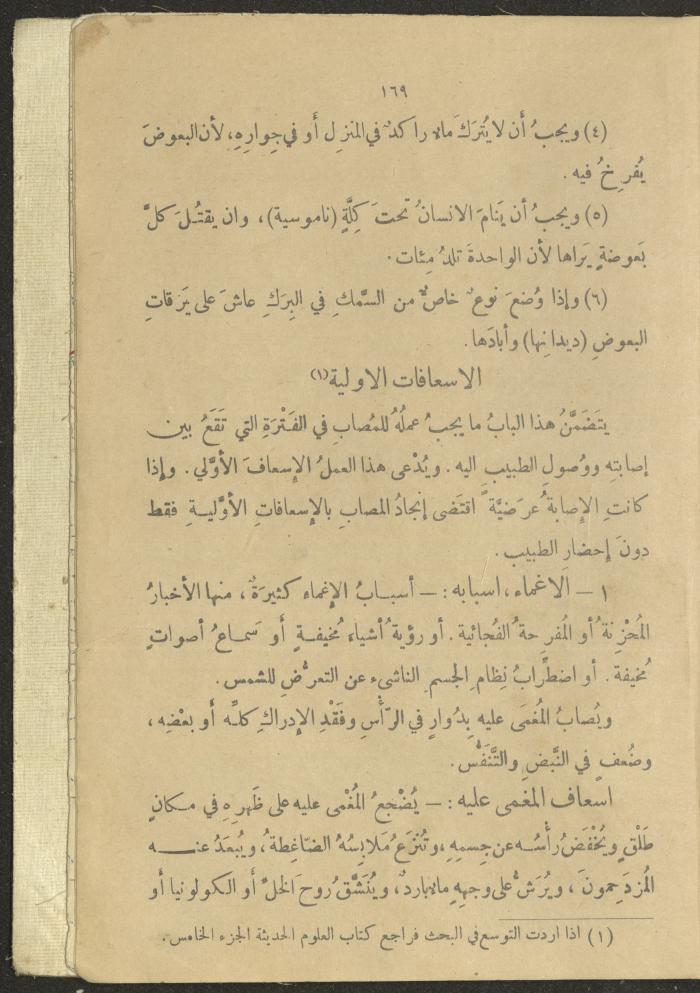 ١٦٩
(٤) ويجبُ أن لا يُتركَ ماءٌ راكدٌ في المنزِلِ أو في جِوارِهِ، لأن البعوضَ
يُفرِخُ فيه .
(٥) ويجبُ أن يَنامَ الانسانُ تحتَ كِلَّةٍ (ناموسية)، وان يقتُلَ كلَّ
بَعوضةٍ يَراها لأن الواحدةَ تلدُ مِئات .
(٦) وإذا وُضعَ نوعٌ خاصٌّ من السَّمكِ في البِرَكِ عاشَ على يَرَقاتِ
البعوضِ (ديدانِها) وأبادَها .
الاسعافات الاولية (١)
يتَضَمَّنُ هذا البابُ ما يجبُ عملُهُ للمُصابِ في الفَتْرَةِ التي تَقَعُ بين
إصابتِه ووُصولِ الطبيبِ اليه . ويُدْعى هذا العملُ الإِسعافَ الأوَّلي . وإذا
كانتِ الإِصابةُ عرَضيَّةً اقتَضى إنجادُ المصابِ بالإِسعافاتِ الأوَّليةِ فقط
دونَ إحضارِ الطبيب .
١ — الاغماء ، اسبابه : — أسبابُ الإِغماءِ كثيرَةٌ ، منها الأخبارُ
المُحْزِنةُ أو المُفرِحةُ الفُجائية . أو رؤيةُ أشياءَ مُخيفةٍ أو سَماعُ أصواتٍ
مُخيفة . أو اضطِرابُ نِظامِ الجسمِ الناشىء عن التعرُّضِ للشمس .
ويُصابُ المُغمَى عليه بِدُوارٍ في الرَّأْسِ وفَقْدِ الإِدراكِ كلِّه أو بعْضِه ،
وضُعفٍ في النَّبضِ والتَّنَفُّس .
اسعاف المغمى عليه : — يُضْجعُ المُغْمى عليه على ظَهرِهِ في مكانٍ
طَلْقٍ ويُخْفَضُ رأْسُه عن جِسمِه ، وتُنزَعُ مَلابِسُهُ الضّاغِطةُ ، ويُبعَدُ عنه
المُزدَحِمونَ ، ويُرَشُّ على وجهِهِ ماءٌ باردٌ ، ويُنَشَّقُ رُوحَ الخلِّ أو الكولونيا أو
(١) اذا اردت التوسع في البحث فراجع كتاب العلوم الحديثة الجزء الخامس .